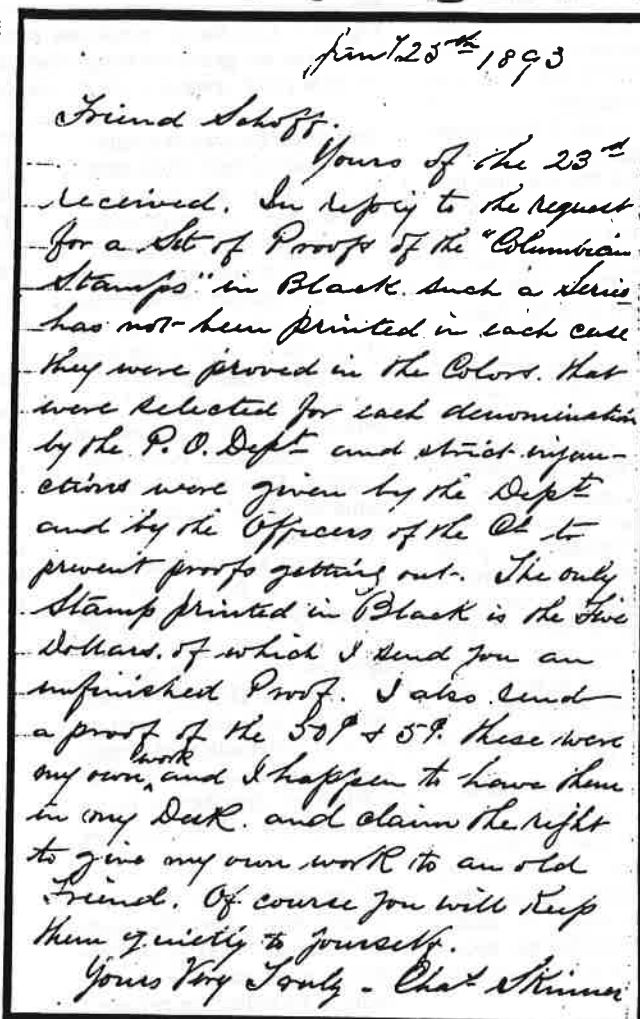 25th 1893
Friend Schoff.
Yours of the 23rd
received. In reply to the request
for a Set of Proofs of the "Columbian
Stamps" in Black. such a Series
has not been printed in each case
they were proved in the Colors. that
were selected for each denomination
by the P. O. Dept and strict injun-
ctions were given by the Dept
and by the Officers of the Co to
prevent proofs getting out. The only
Stamp printed in Black is the Five
Dollars. of which I send you an
unfinished Proof. I also send
a proof of the 50¢ & 5¢. these were
my own work and I happen to have them
in my Desk. and claim the right
to give my own work to an old
Friend. Of course you will Keep
them quietly to yourself.
Yours Very Truly - Chas Skinner